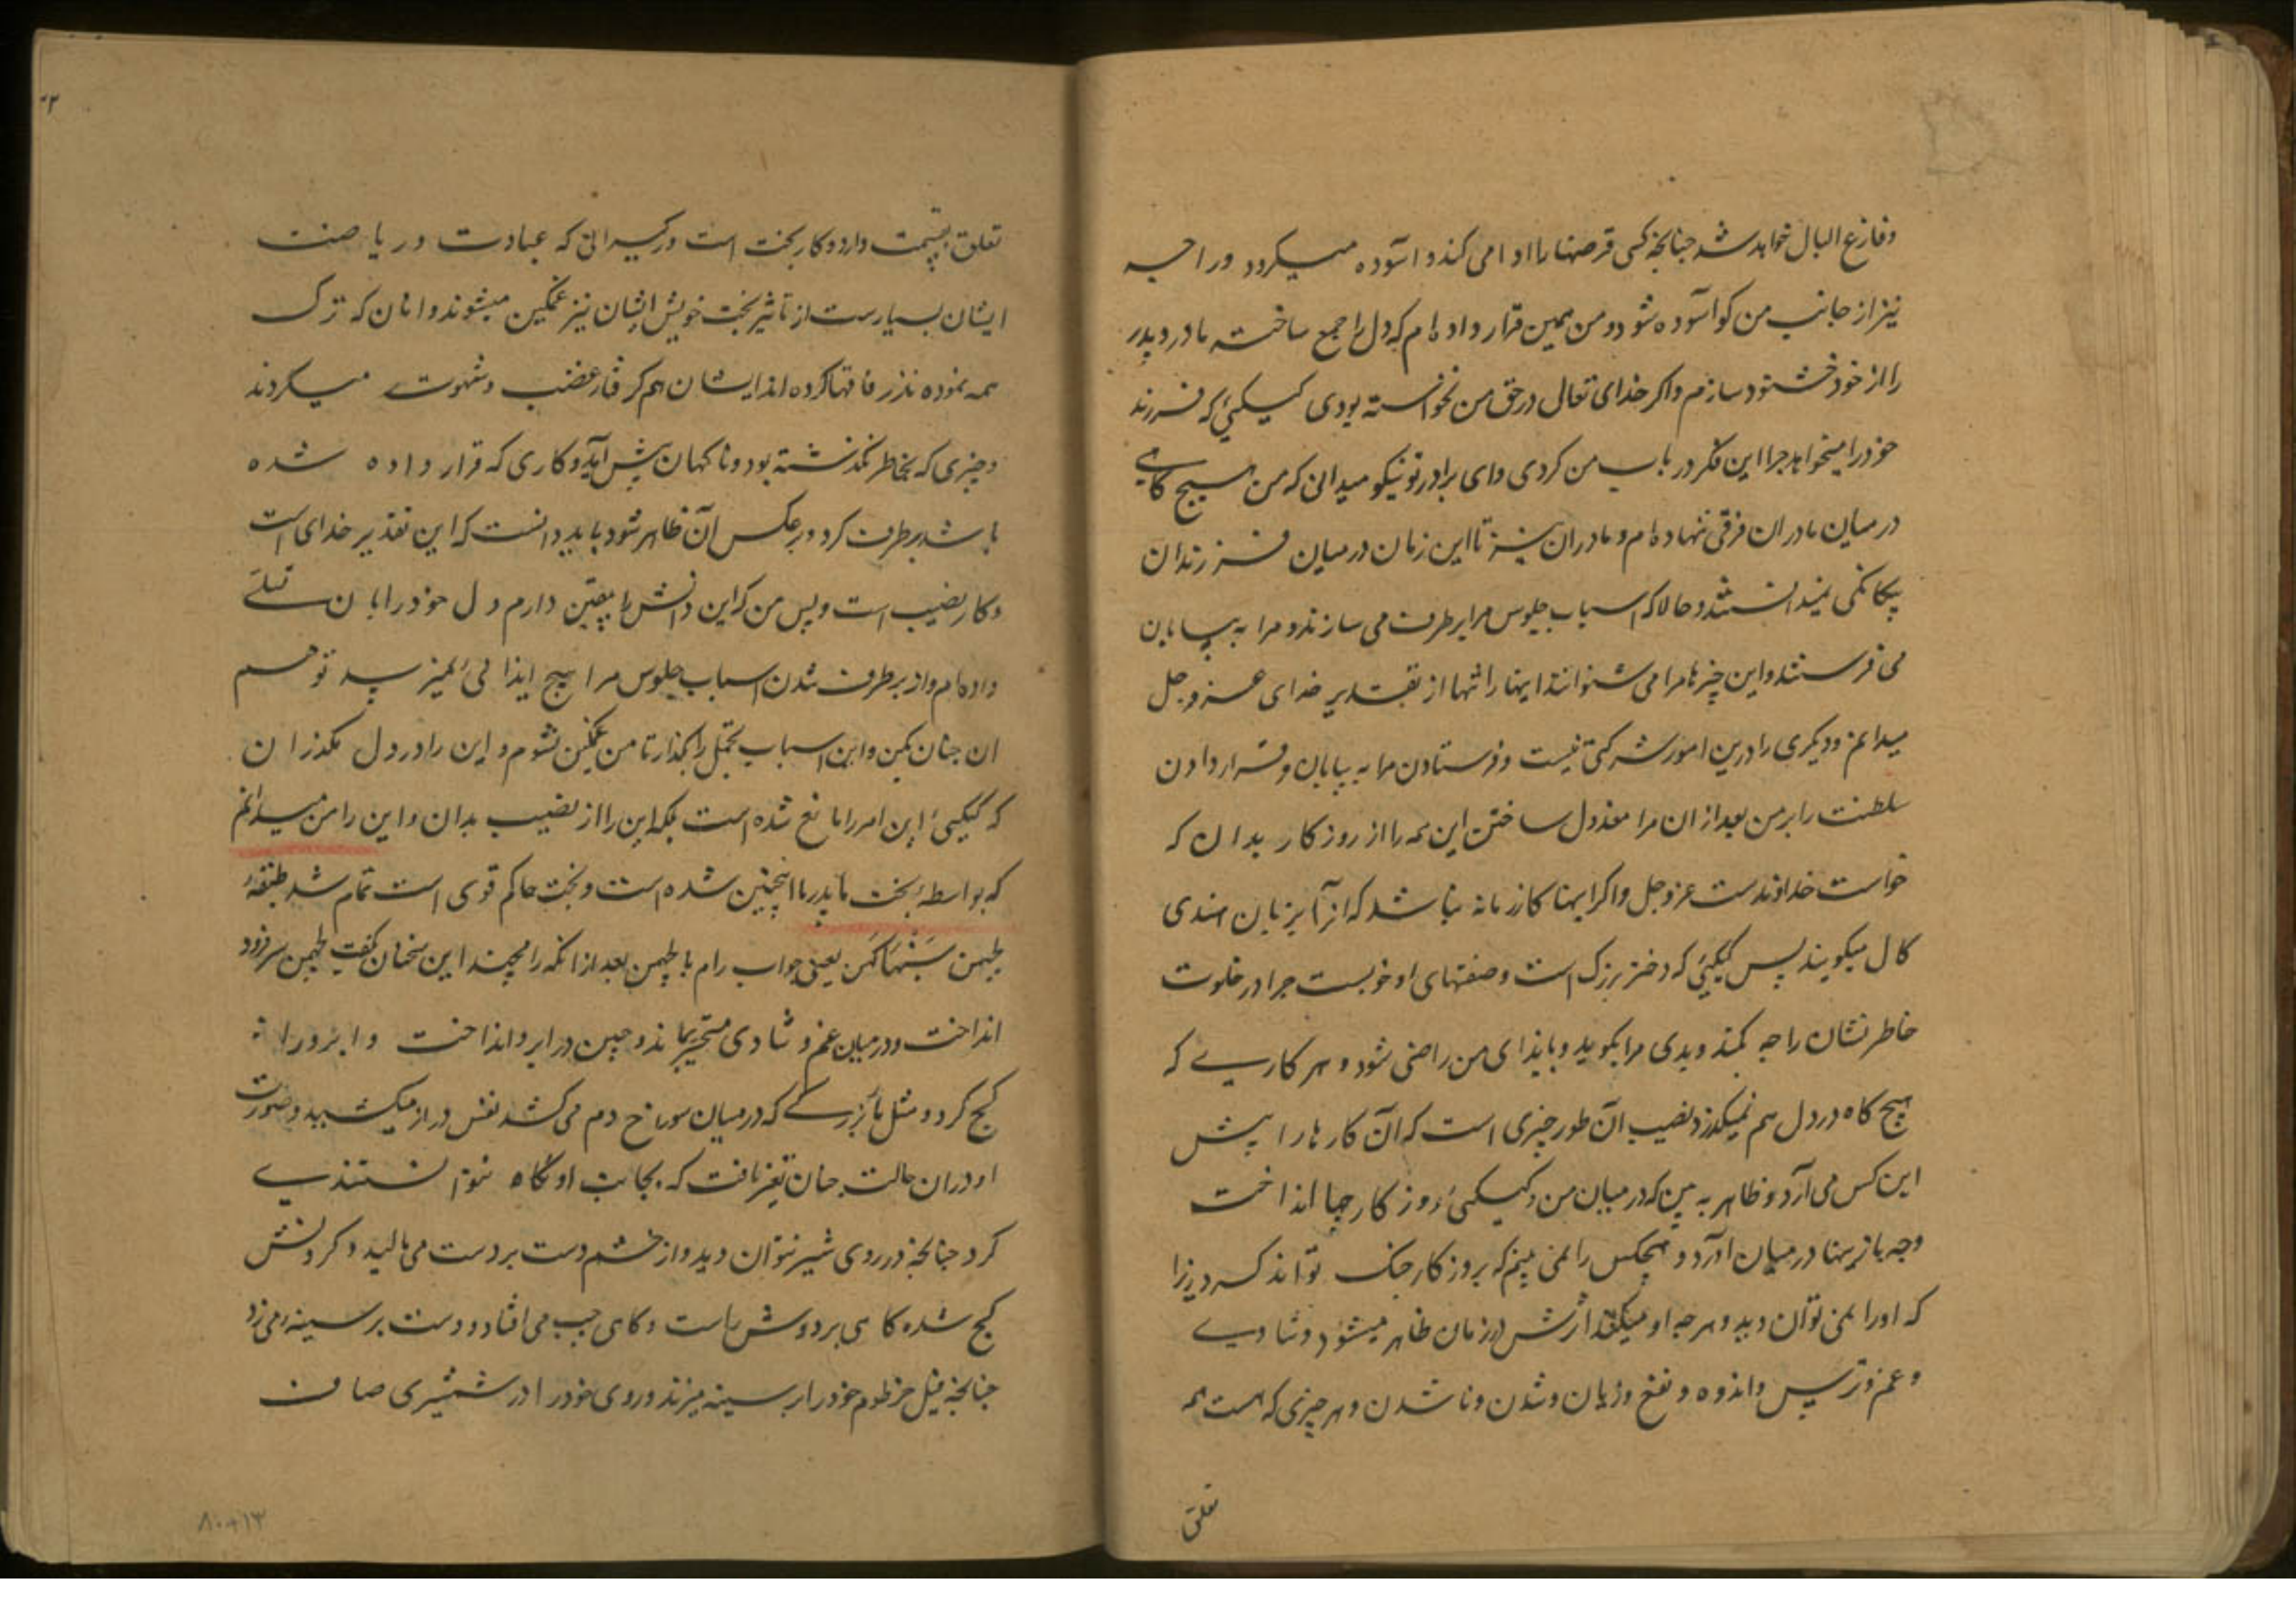 وفارغ البال خواهد شد چنانچه کسی قرضها را ادا می کند و آسوده میکردد و راحیه
نیز از جانب من کو آسوده شود و من همین قرار داده ام که دل را جمع ساخته مادر و پدر
را از خود خشنود سازم و اکر خدای تعالی در حق من نخواسته بودی کیکیئ که فرزند
خود را میخواهد چرا این فکر در باب من کردی و ای برادر تو نیکو میدانی که من هیچ کاهی
در میان مادران فرقی ننهاده ام و مادران نیز تا این زمان در میان فرزندان
بیکانکی نمیدانستند و حالا که اسباب جلوس مرا برطرف می سازند و مرا به بیابان
می فرستند و این چیزها مرا می شنوانند اینها را تنها از تقدیر خدای عز و جل
میدانم و دیکری را درین امور شرکتی نیست و فرستادن مرا به بیابان و قرار دادن
سلطنت را بر من بعد ازان مرا معزول ساختن این همه را از روزکار بدان که
خواست خداوندست عز و جل و اکر اینها کار زمانه نباشد که آنرا بزبان هندی
کال میکویند پس کیکیئ که دختر بزرک است و صفتهای او خوبست چرا در خلوت
خاطر نشان راجه کند و بدی مرا بکوید و بایذای من راضی شود و هر کاری که
هیچ کاه در دل هم نمیکذرد نصیب آن طور چیزی است که آن کارها را پیش
این کس می آرد و ظاهر به بین که در میان من و کیکیئ روزکار چها انداخت
وچه بازیها در میان آورد و هیچکس را نمی بینم که بروزکار جنک تواند کرد زیرا
که او را نمی توان دید و هر چه او میکند اثرش در زمان ظاهر میشود و شادی
و غم و ترس و اندوه و نفع و زیان و شدن و ناشدن و هر چیزی که هست همه
تعلق
تعلق بقسمت دارد و کار بخت است و کسرانی که عبادت و ریاضت
ایشان بسیارست از تاثیر بخت خویش ایشان نیز غمکین میشوند و آنان که ترک
همه نموده نذر فاقها کرده اند ایشان هم کرفتار غضب و شهوت میکردند
و چیزی که بخاطر نکذشته بود و ناکهان پیش آید و کاری که قرار داده شده
باشد برطرف کردد و برعکس آن ظاهر شود باید دانست که این تقدیر خدای است
و کار نصیب است و پس من که این دانش را یقین دارم و دل خود را بآن تسلی
داده ام و از برطرف شدن اسباب جلوس مرا هیچ ایذائی نمیرسد تو هم
آن چنان بکن و این اسباب تجمل را بکذار تا من غمکین نشوم و این را در دل مکذران
که کیکیئ این امر را مانع شده است بلکه این را از نصیب بدان و این را من میدانم
که بواسطهٔ بخت ما پدر ما اینچنین شده است و بخت حاکم قوی است تمام شد طبقهٔ
لچهمن سَنبهاکهن یعنی جواب رام با لچهمن بعد ازانکه رامچند این سخنان کفت لچهمن سر فرود
انداخت و در میان غم و شادی متحیر بماند و چین در ابرو انداخت و ابرو را
کج کرد و مثل مار بزرکی که در میان سوراخ دم می کشد نفس دراز میکشید و صورت
او دران حالت چنان تغیر یافت که بجانب او نکاه نتوانستندی
کرد چنانچه در روی شیر نتوان دید و از خشم دست بر دست می مالید و کردنش
کج شده کاهی بر دوش راست و کاهی چپ می افتاد و دست بر سینه می زد
چنانچه فیل خرطوم خود را بر سینه میزند و روی خود را در شمشیری صاف
۸۰۰۱۳